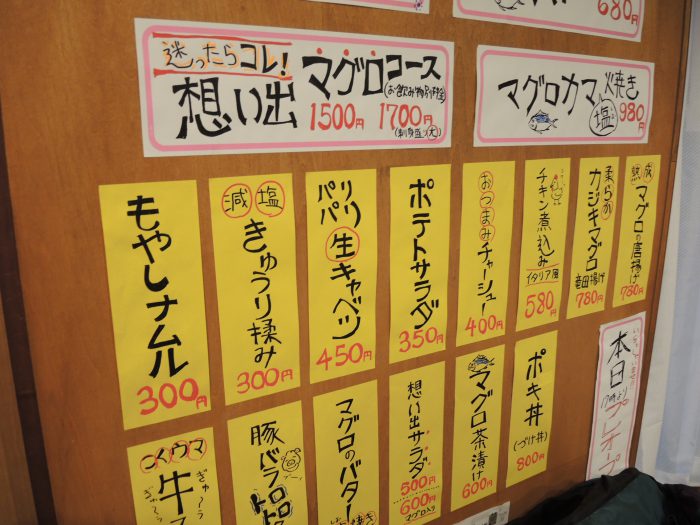 680円
迷ったらコレ!
想い出
マグロコース
(お飲み物別料金)
1500円
1700円
マグロカマ焼き
塩
980円
もやしナムル
300円
減塩
きゅうり揉み
300円
パリパリ
生キャベツ
450円
ポテトサラダ
350円
おつまみチャーシュー
400円
チキン煮込み
イタリア風
580円
柔らか
カジキマグロ
竜田揚げ
780円
熟成
マグロの唐揚げ
780円
牛
豚バラ
マグロのバター
想い出サラダ
500円
600円
マグロ入り
マグロ茶漬け
600円
ポキ丼
(づけ丼)
800円
本日
プレオープ